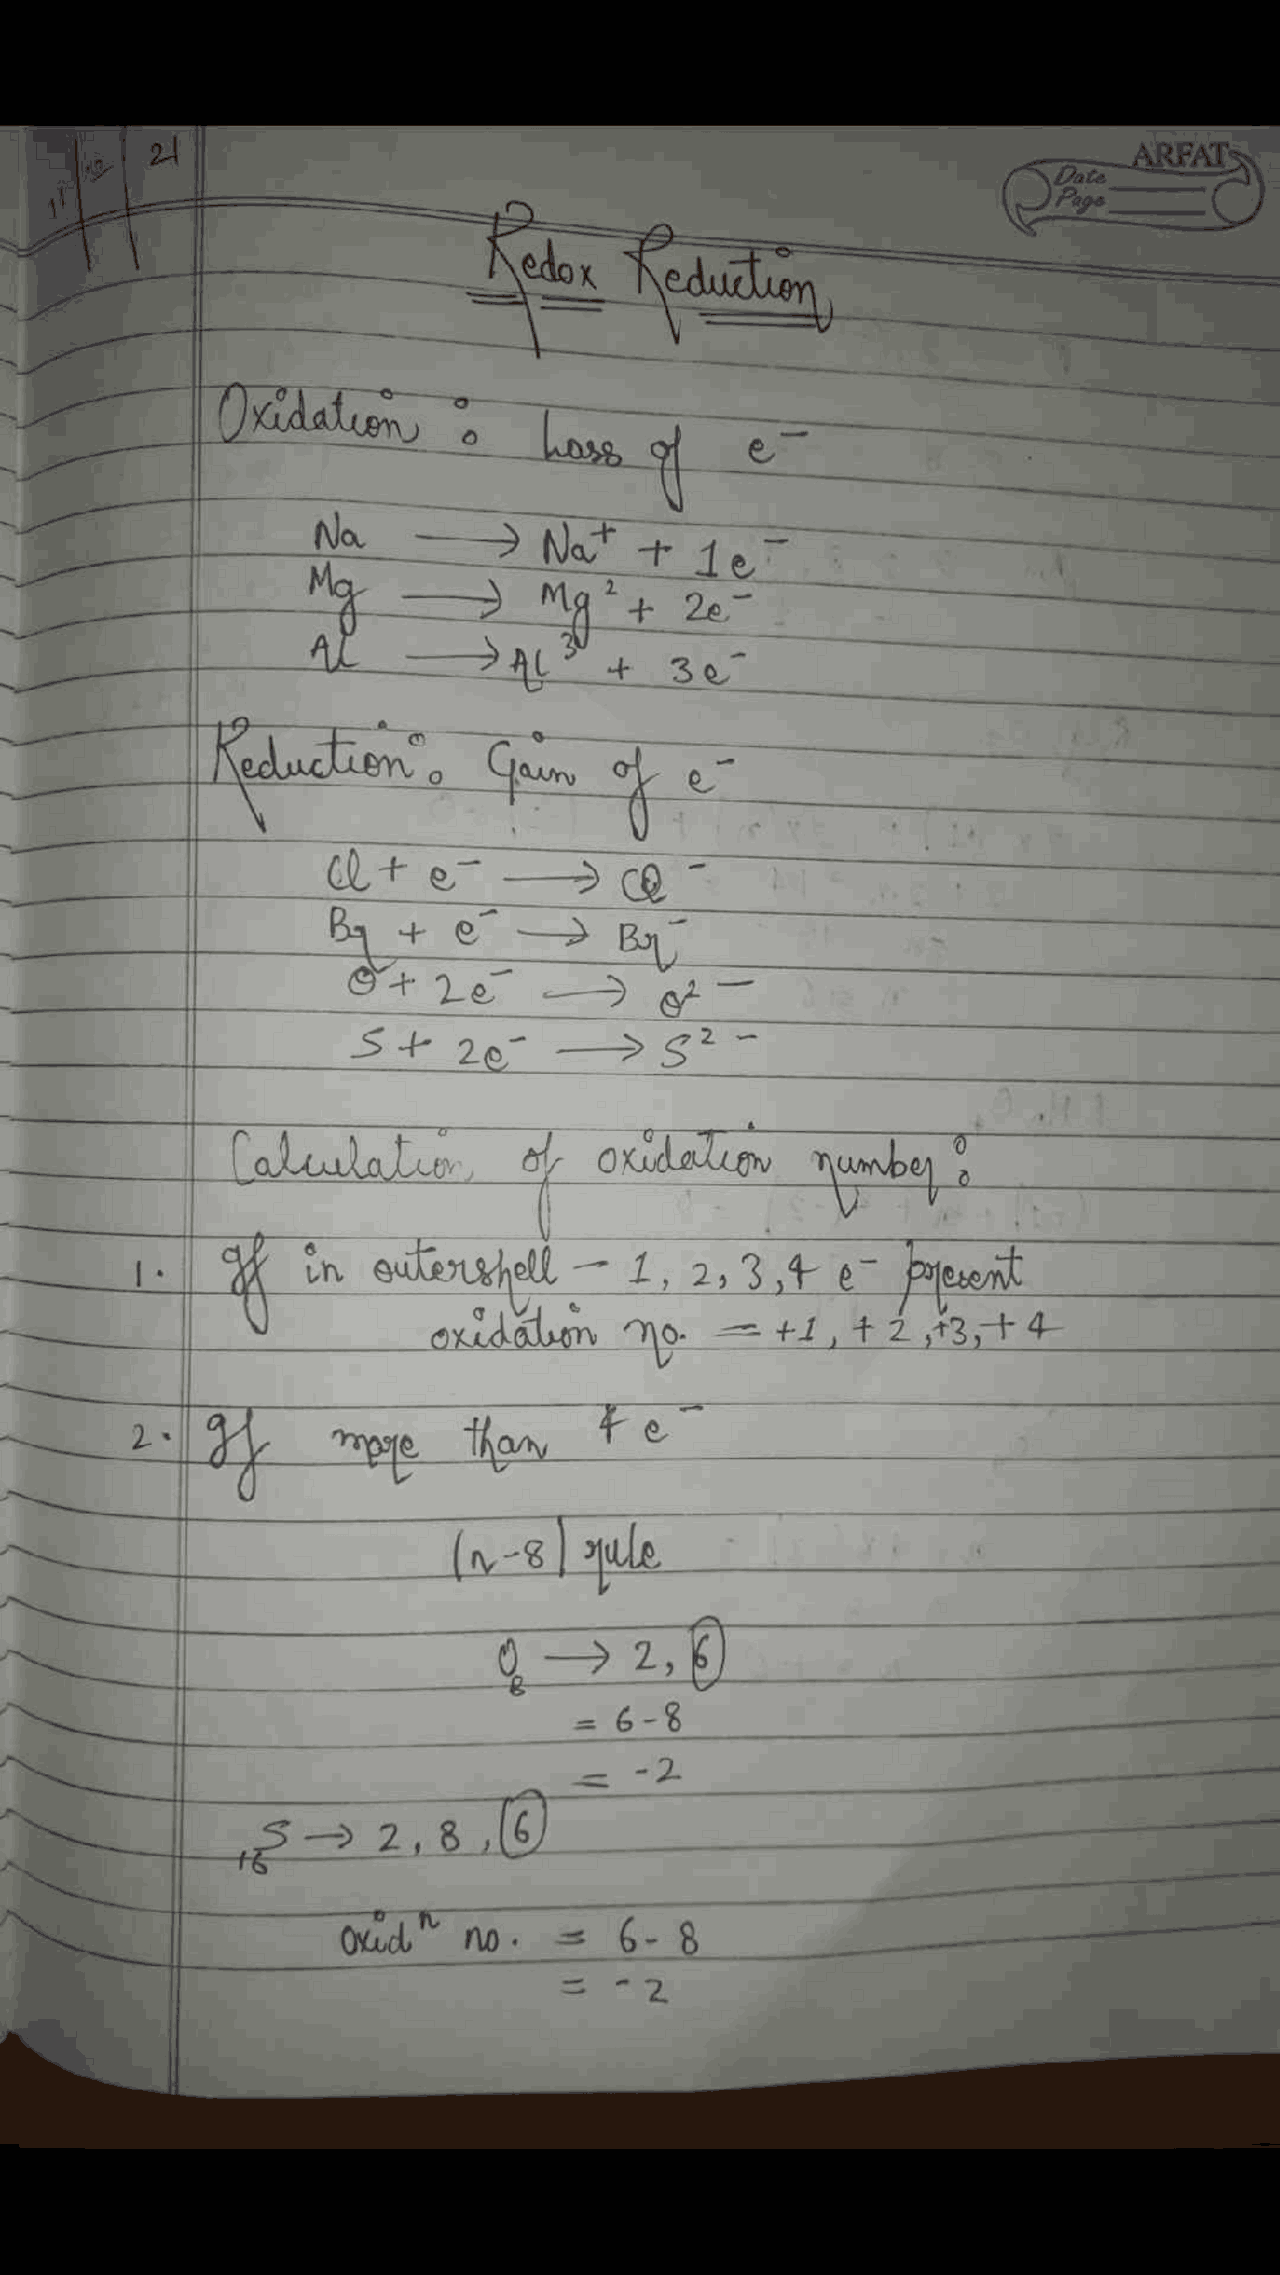 21
ARFAT
Date
Page
Redox Reduction
Oxidation : Loss of e⁻
Na → Na⁺ + 1e⁻
Mg → Mg² + 2e⁻
Al → Al³ + 3e⁻
Reduction : Gain of e⁻
Cl + e⁻ → Cl⁻
Br + e⁻ → Br⁻
O + 2e⁻ → O²⁻
S + 2e⁻ → S²⁻
Calculation of oxidation number :
1. If in outershell - 1, 2, 3, 4 e⁻ present
oxidation no. = +1, +2, +3, +4
2. If more than 4 e⁻
(n-8) rule
O₈ → 2, 6
= 6-8
= -2
₁₆S → 2, 8, 6
Oxidⁿ no. = 6-8
= -2